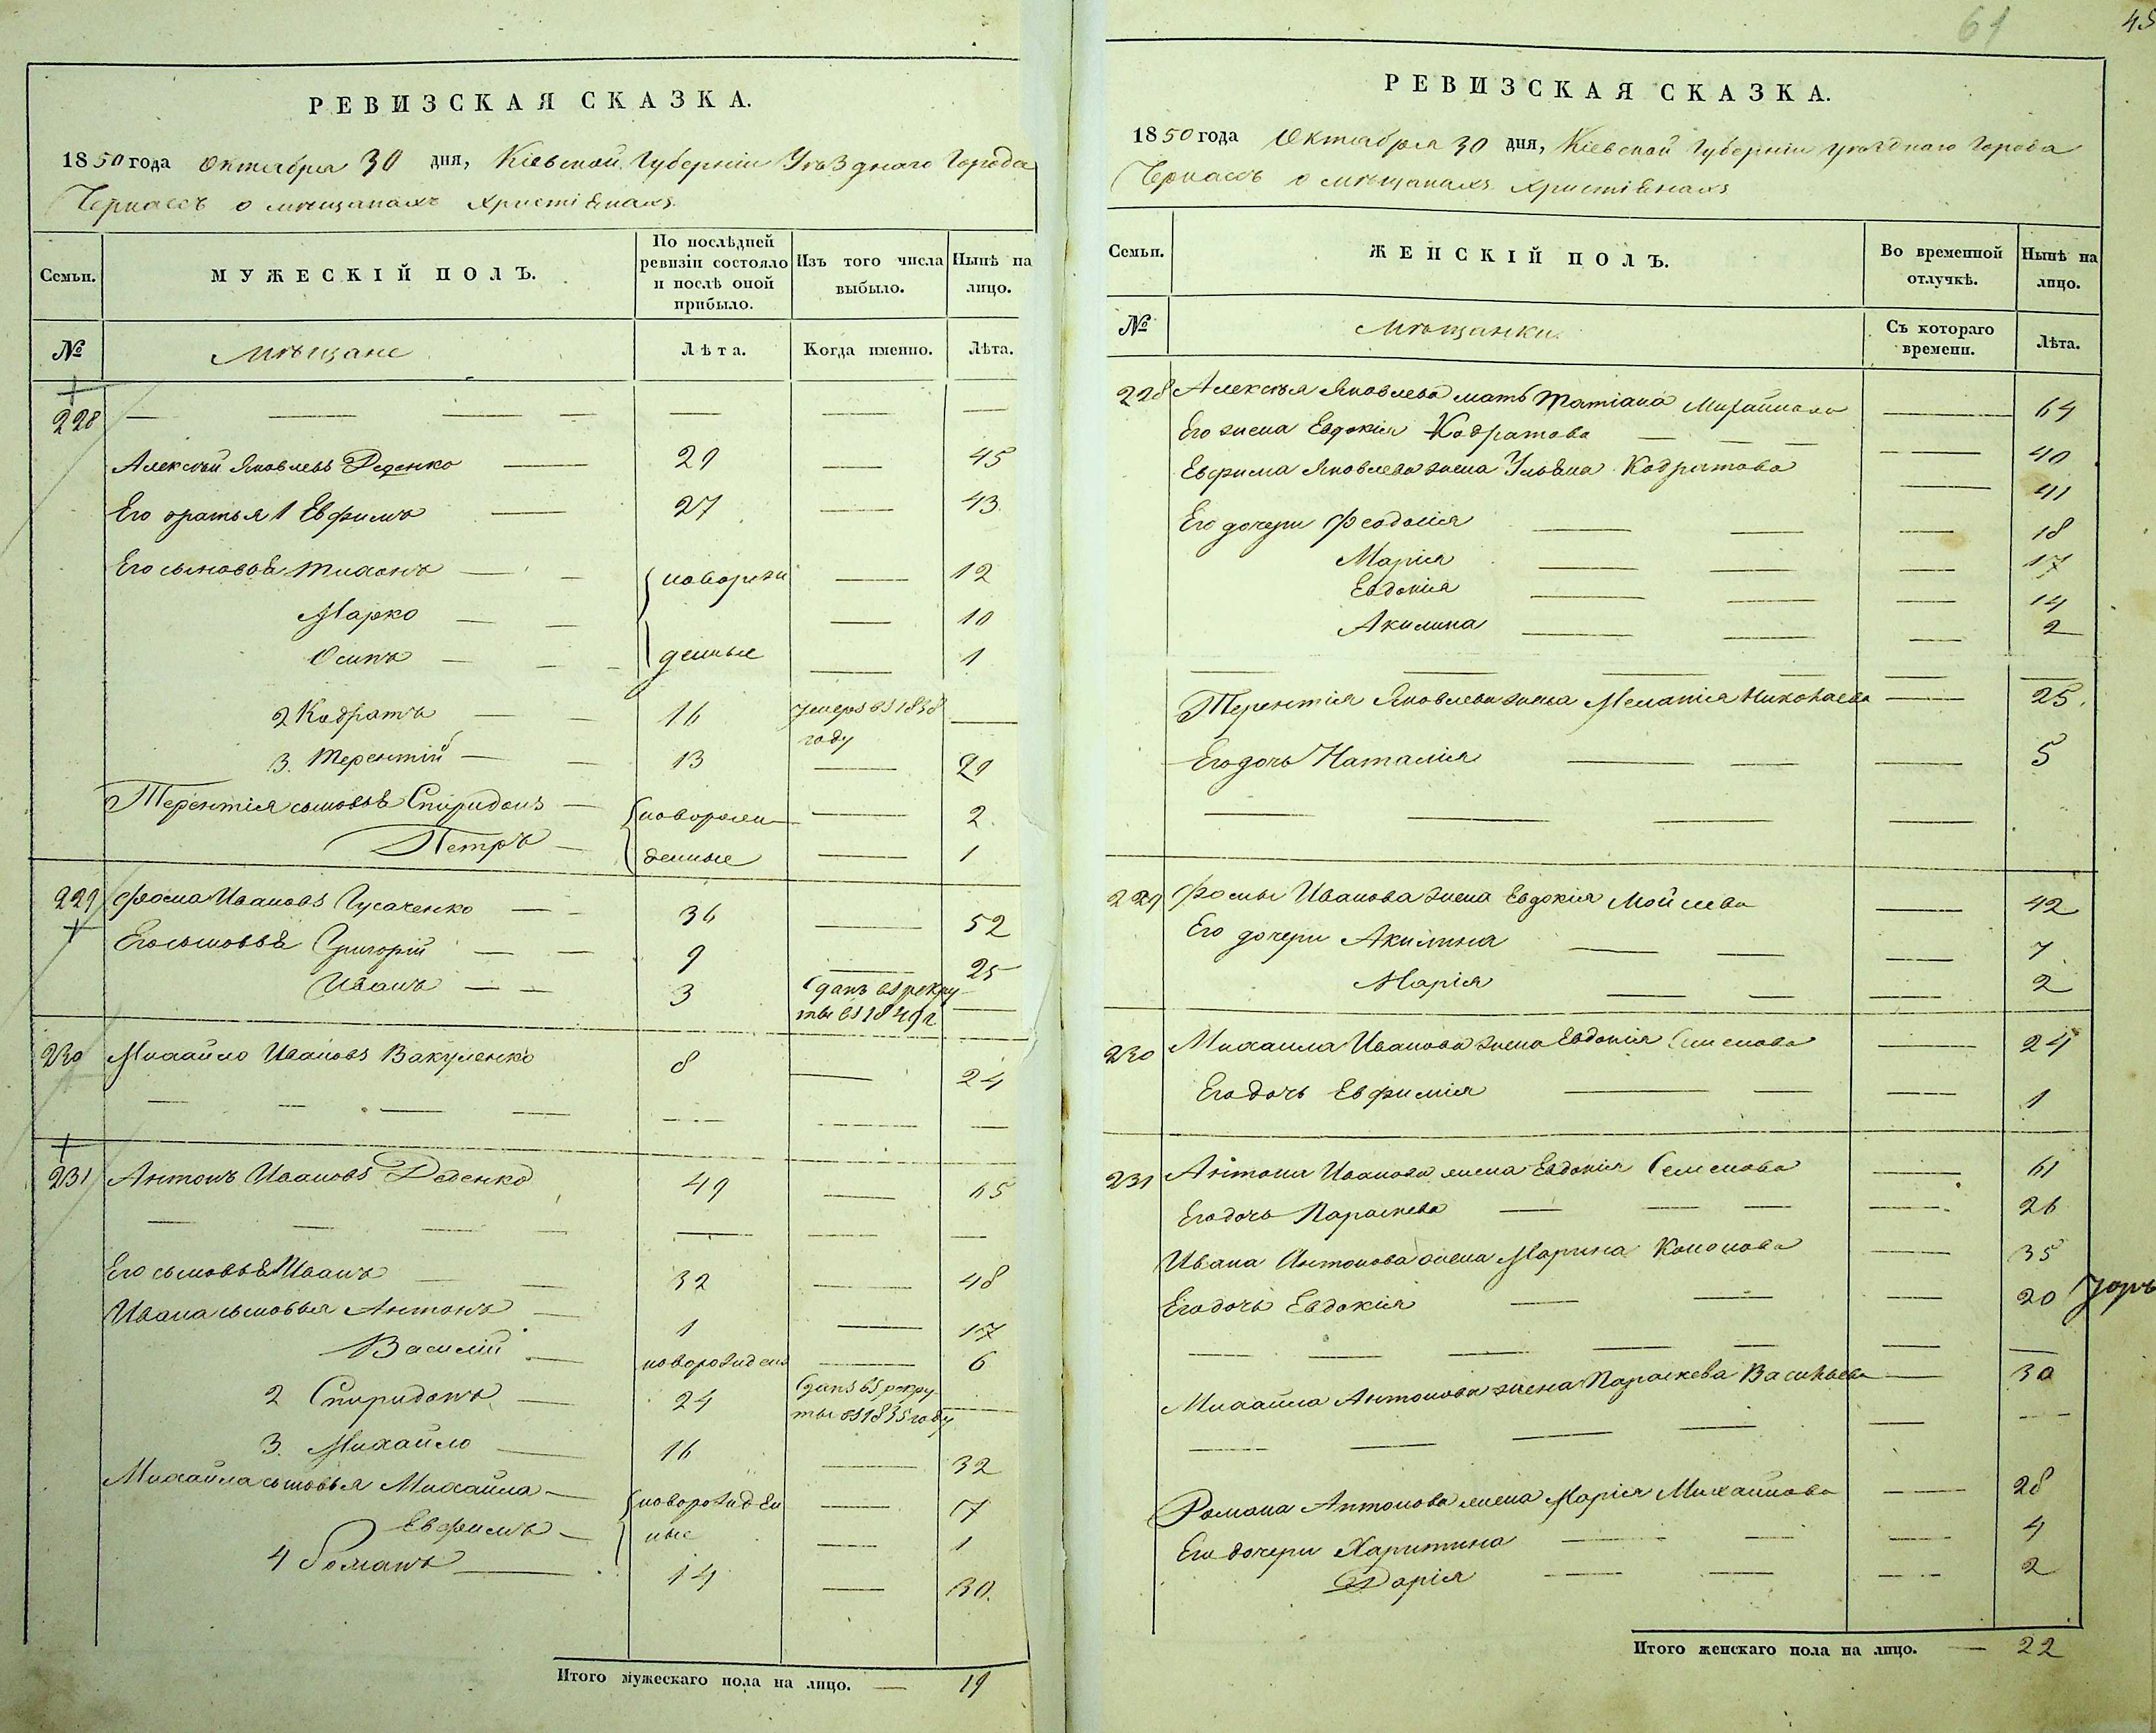 РЕВИЗСКАЯ СКАЗКА.
1850 года Октября 30 дня, Кіевской Губерніи Уѣзднаго Города
Черкассъ о мѣщанахъ христіянахъ
Семьи. МУЖЕСКІЙ ПОЛЪ. По послѣдней ревизіи состояло и послѣ оной прибыло. Изъ того числа выбыло. Нынѣ на лицо.
№ Мѣщане Лѣта. Когда именно. Лѣта.
228
Алексѣй Яковлевъ Деденко 29 45
Его братья 1 Евфимъ 27 43
Его сыновья Тихонъ новорож 12
Марко 10
Осипъ денные 1
2 Кодратъ 16 умеръ въ 1838 году
3. Терентій 13 29
Терентія сыновья Спиридонъ новорож 2
Петръ денные 1
229 Фома Ивановъ Гусаченко 36 52
Его сыновья Григорій 9 25
Иванъ 3 Сданъ въ рекру
ты въ 1849 г
230 Михайло Ивановъ Вакуленко 8 24
231 Антонъ Ивановъ Деденко 49 65
Его сыновья Иванъ 32 48
Ивана сыновья Антонъ 1 17
Василій новорожден 6
2 Спиридонъ 24 Сданъ въ рекру
ты въ 1835 году
3. Михайло 16 32
Михайла сыновья Михайла новорожден 7
Евфимъ ные 1
4 Романъ 14 30.
Итого мужескаго пола на лицо. 19
61
45
РЕВИЗСКАЯ СКАЗКА.
1850 года Октября 30 дня, Кіевской Губерніи Уѣзднаго Города
Черкассъ о мѣщанахъ христіянахъ
Семьи. ЖЕНСКІЙ ПОЛЪ. Во временной отлучкѣ. Нынѣ на лицо.
№ Мѣщанки. Съ котораго времени. Лѣта.
228 Алексѣя Яковлева мать Татіана Михайлова 64
Его жена Евдокія Кодратова 40
Евфима Яковлева жена Ульяна Кодратова 41
Его дочери Феодосія 18
Марія 17
Евдокія 14
Акилина 2
Терентія Яковлева жена Меланія Николаева 25.
Его дочь Наталія 5
229 Фомы Иванова жена Евдокія Мойсеева 42
Его дочери Акилина 7
Марія 2
230 Михаила Иванова жена Евдокія Семенова 24
Его дочь Евфимія 1
231 Антона Иванова жена Евдокія Семенова 61
Его дочь Параскева 26
Ивана Антонова жена Марина Кононова 35
Его дочь Евдокія 20
Михайла Антонова жена Параскева Васильева 30
Романа Антонова жена Марія Михайлова 28
Его дочери Харитина 4
Дарія 2
Итого женскаго пола на лицо. 22